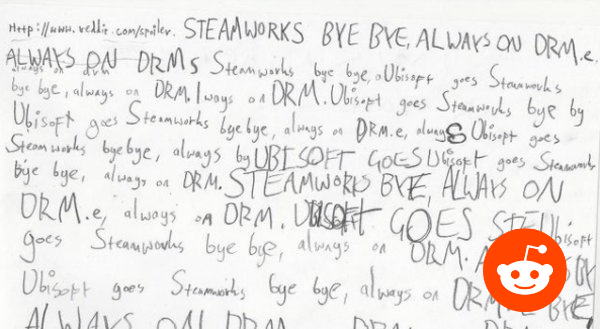 Http://www.reddit.com/spoiler. STEAMWORKS BYE BYE, ALWAYS ON DRM.e.
ALWAYS ON DRMs Steamworks bye bye, aUbisoft goes Steamworks
always on drm
bye bye, always on DRM. lways on DRM. Ubisoft goes Steamworks bye by
Ubisoft goes Steamworks bye bye, always on DRM.e, always Ubisoft goes
Steamworks bye bye, always by UBISOFT GOES Ubisoft goes Steamworks
bye bye, always on DRM. STEAMWORKS BYE, ALWAYS ON
DRM.e, always on DRM. UBISOFT GOES STEUbisoft
goes Steamworks bye bye, always on DRM.
Ubisoft goes Steamworks bye bye, always on DRM. BYE
ALWAYS ON DRM